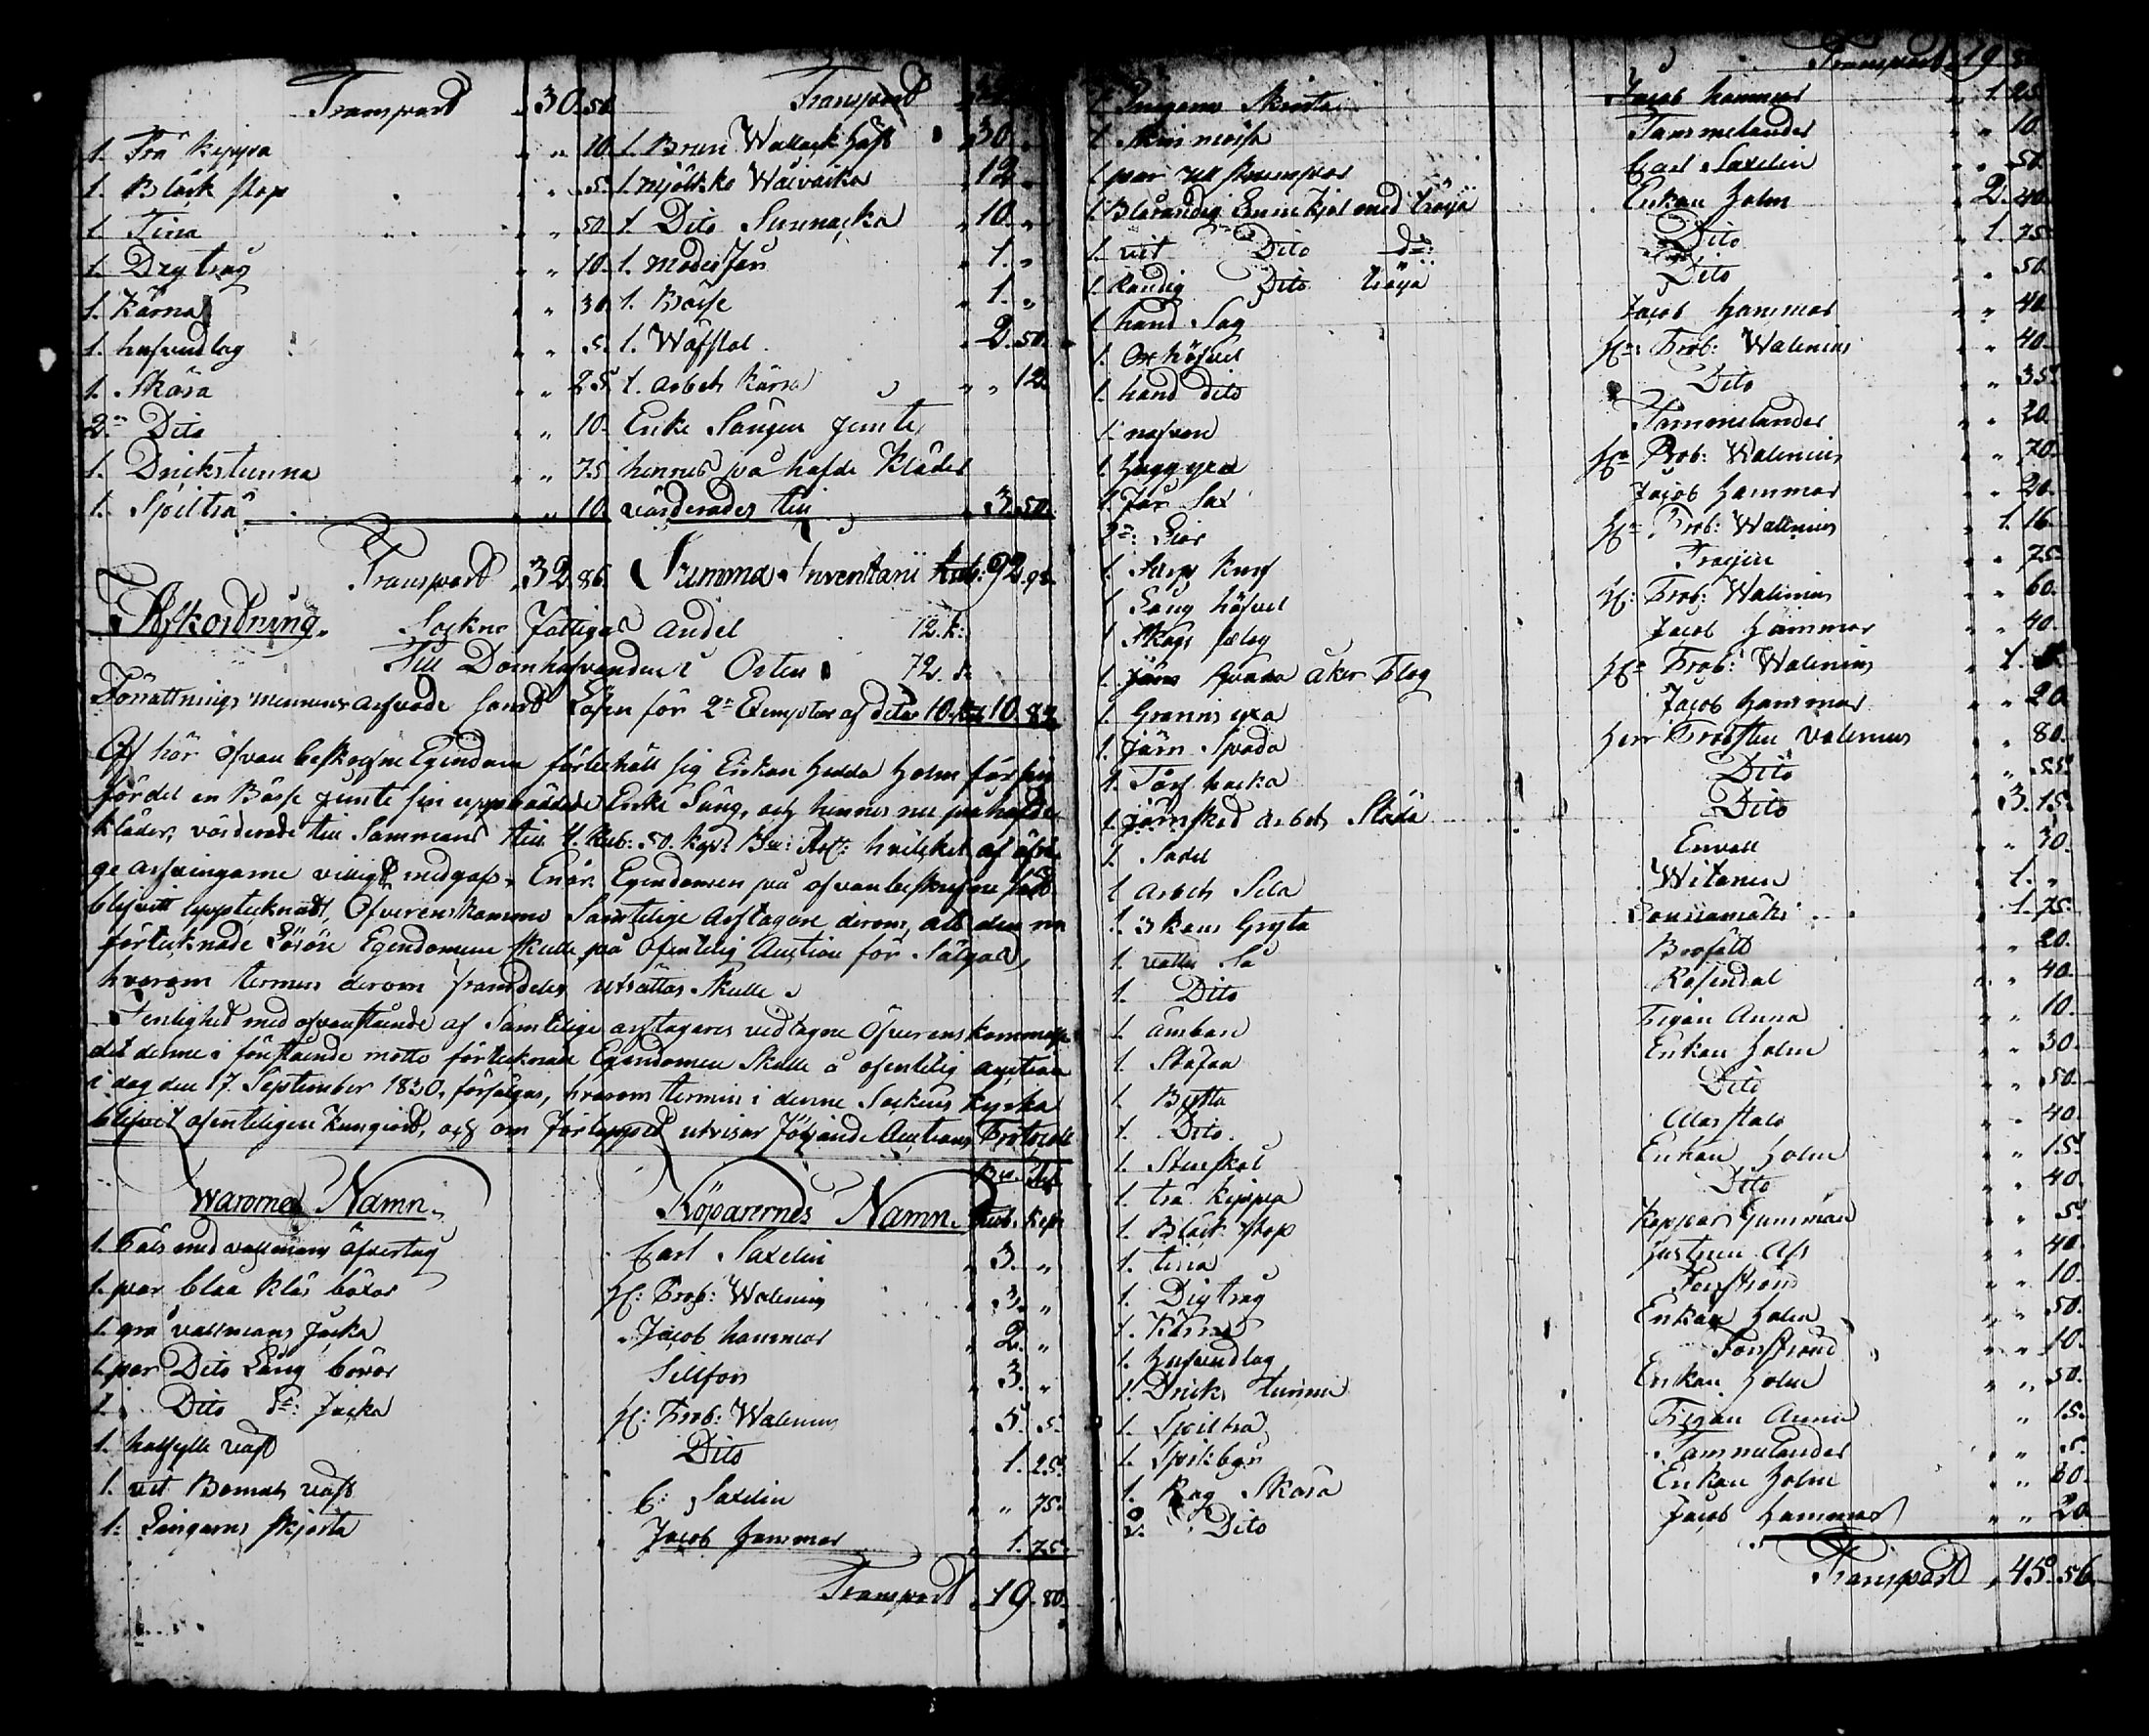 Transport 30.56.
1. Trä kippa " " 10.
1. Bläck stop " " 5.
1. Tina " " 50.
1. Degtrag " " 10.
1. Kärna " " 30.
1. hufvudlag " " 5.
1. Skära " " 25.
2:ne Dito " " 10.
1. Dricks tunna " " 75
1. Spiltrå " " 10.
Transport 32.86.
Transport
1. Brun Wallack Häst " 30.
1. mjölk ko Walvacka " 12.
1. Dito Sunnacka " 10. "
1. moder får " 1. "
1. Bässe " 1. "
1. Wäfstol " 2.50.
1. arbets Kärra " " 12.
Enke Sängen jemte
hennes på hafde Kläder
värderades till " 3.50.
Summa Inventarii Rub: 92.
Afkortning.
Sockne Fattigas andel 12. k:
Till Domhafvanden i Orten 72. d:
Förrättnings mennens arfvode samt Lösen för 2:ne Exemplar af detta 10. 10.82
Af här ofvan beskrefne Egendom förbehöll sig Enkan Hedda Holm för sin
fördel en Bässe jemte sin uppbäddade Enke Säng, och hennes nu påhafde
kläder, värderade till Sammans till 4. Rub: 50. Kop: Bco: Ass: hvilket af öfri-
ge arfvingarne villigt medgafs. Enär Egendomen på ofvanbeskrefne sätt
blifvitt upptecknadt, Öfverenskommo Samtelige Arftagare derom, att den nu
förtecknade Lösöre Egendomen skulle på Ofentelig Auction för Säljas,
hvarom termin derom framdeles utsättas Skulle.
I enlighet med ofvanstående af Samtelige arftagares vedtagne Öfverenskommelse
det denne i förestående motto förtecknade Egendomen Skulle å ofentelig auction
i dag den 17. September 1830. försäljas, hvarom termin i denne Sockens Kyrka
blifvit ofenteligen Kungjord, och om förloppet utvisar följande Auctions Protocoll
Bco: Ass:
Warornes Namn. Köparernes Namn. Rub. Kop:
1. Päls med vallmans öfvertag Carl Saxelin " 3. "
1. par blaa Kläs böxor H: Prob: Walenius " 3. "
1. grå vallmans Jacka Jacob hammar " 2. "
1. par Dito Lång böxor Sillfors " 3. "
1. Dito d:o Jacka H: Prob: Walenius " 5. 5.
1. halfylle väst Dito 1. 25.
1. vit Bomuls väst C: Saxelin " " 75.
1. Lingarns skjorta Jacob hammar 1. 75.
Transport 19. 80.
Transport 19.
1. Lingarns Skiorta Jacob hammar " 1. 25.
1. Skin mössa Tammelander " " 10.
1. par ull strumpor Carl Saxelin " " 50.
1. Blårandig Qvinnskjol med tröija Enkan Holm " 2. 40.
1. vit Dito d:o Dito " 1. 75.
1. Randig Dito tröija Dito " " 50.
1. hand Såg Jacob Hammar " " 40.
1. Ox höfvel H:r Prob: Walenius " " 40.
1. hand dito Dito " " 35.
1. nafvare Tammelander " " 20.
1. Hugg yxa H:r Prob: Walenius " " 70.
1. Får Sax Jacob Hammar " " 20.
2:ne Liar H:r Prob: Wallenius " 1. 16.
1. Skarp Knif Frogin " " 75.
1. Lång höfvel H: Prob: Walenius " " 60.
1. Skogs selag Jacob Hammar " " 40.
1. åker Plog H:r Prob: Walenius " 1.
1. Granris yxa Jacob Hammar " " 20
1. järn Spada Herr Probsten Valenius " " 80.
1. Torf hacka Dito " " 55.
1. järnskod Arbets Släda Dito " 3. 15.
1. Sadel Envall " " 30.
1. arbets Sela Witanen " 1. "
1. 3 kans Gryta Lounamäki 1. 75.
1. vatten Så Brofält " " 20.
1. Dito Rosendal " " 40.
1. ämbare Pigan Anna " " 10.
1. Stäfva Enkan Holm " " 30.
1. Bytta Dito " " 50.
1. Dito Alarstalo " " 40.
1. Stenskål Enkan Holm " " 15.
1. trä kippa Dito " " 40.
1. Bläck stop " " 5.
1. tina " " 40.
1. Degtrag Forsström " " 10.
1. Kärna Enkan Holm " " 50.
1. Hufvudlag Forsström " " 10.
1. Dricks tunna Enkan Holm " " 50.
1. Spiltrå Pigan Anna " 15.
1. Tammelander " " 5.
1. Råg Skära Enkan Holm " " 30.
2. Dito Jacob Hammar " " 20
Transport " 45. 56.